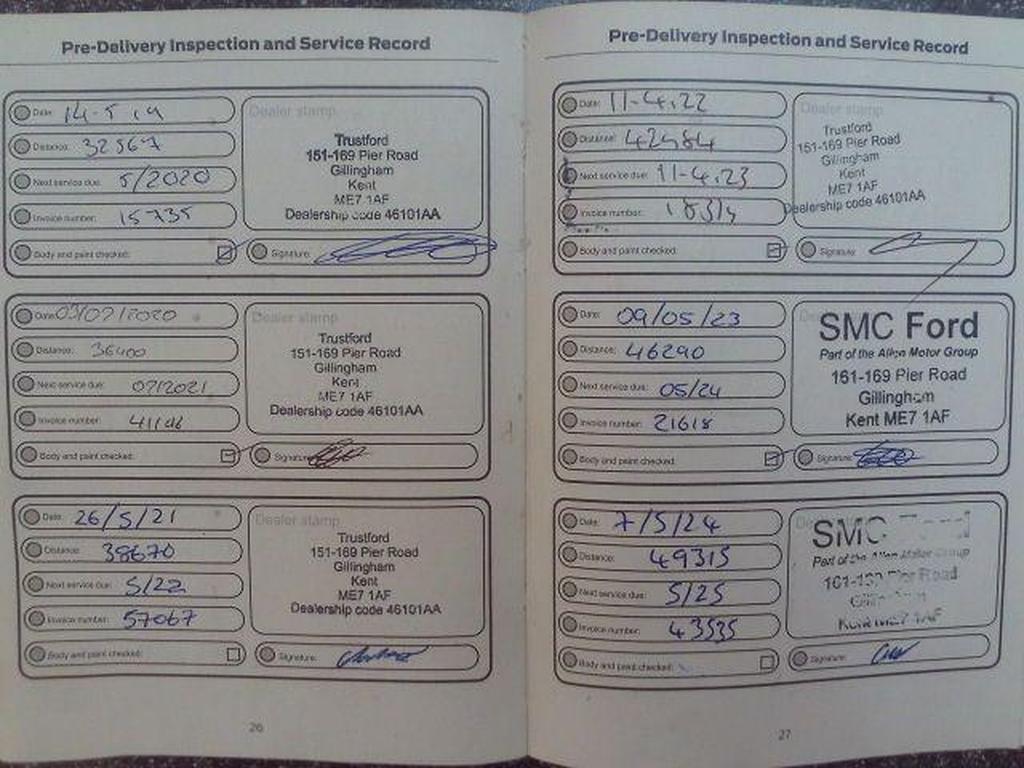 Pre-Delivery Inspection and Service Record
Date: 14-5-19
Distance: 32567
Next service due: 5/2020
Invoice number: 15735
Body and paint checked:
Signature:
Dealer stamp
Trustford
151-169 Pier Road
Gillingham
Kent
ME7 1AF
Dealership code 46101AA
Date: 03/07/2020
Distance: 36400
Next service due: 07/2021
Invoice number:
Body and paint checked:
Signature:
Dealer stamp
Trustford
151-169 Pier Road
Gillingham
Kent
ME7 1AF
Dealership code 46101AA
Date: 26/5/21
Distance: 38670
Next service due: 5/22
Invoice number: 57067
Body and paint checked:
Signature:
Dealer stamp
Trustford
151-169 Pier Road
Gillingham
Kent
ME7 1AF
Dealership code 46101AA
26
Pre-Delivery Inspection and Service Record
Date: 11-4.22
Distance: 42484
Next service due: 11-4.23
Invoice number:
Body and paint checked:
Signature:
Dealer stamp
Trustford
151-169 Pier Road
Gillingham
Kent
ME7 1AF
Dealership code 46101AA
Date: 09/05/23
Distance: 46290
Next service due: 05/24
Invoice number: 21618
Body and paint checked:
Signature:
SMC Ford
Part of the Allen Motor Group
161-169 Pier Road
Gillingham
Kent ME7 1AF
Date: 7/5/24
Distance: 49315
Next service due: 5/25
Invoice number: 43535
Body and paint checked:
Signature:
SMC Ford
Part of the Allen Motor Group
161-169 Pier Road
Gillingham
Kent ME7 1AF
27